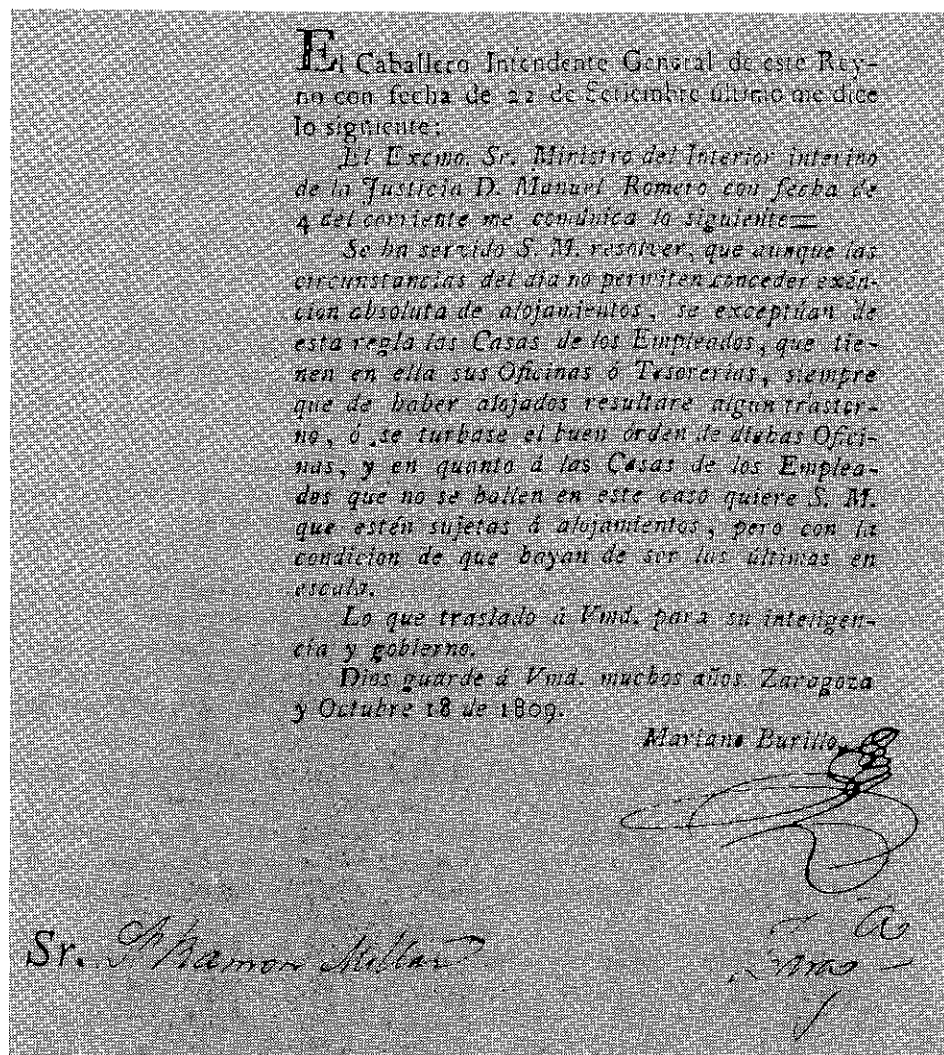 El Caballero Intendente General de este Rey-
no con fecha de 22 de Setiembre último me dice
lo siguiente:
El Excmo. Sr. Ministro del Interior interino
de la Justicia D. Manuel Romero con fecha de
4 del corriente me comúnica lo siguiente=
Se ha servido S. M. resolver, que aunque las
circunstancias del dia no permiten conceder exên-
cion absoluta de alojamientos, se exceptúan de
esta regla las Casas de los Empleados, que tie-
nen en ella sus Oficinas ó Tesorerías, siempre
que de haber alojados resultare algun trastor-
no, ó se turbase el buen órden de dichas Ofici-
nas, y en quanto á las Casas de los Emplea-
dos que no se hallen en este caso quiere S. M.
que estén sujetas á alojamientos, pero con la
condicion de que hayan de ser las últimas en
escala.
Lo que traslado á Vmd. para su inteligen-
cia y gobierno.
Dios guarde á Vmd. muchos años. Zaragoza
y Octubre 18 de 1809.
Mariano Burillo
Sr. Ramon Millan